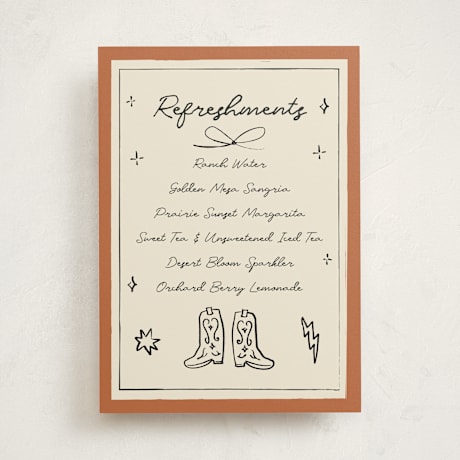 Refreshments
Ranch Water
Golden Mesa Sangria
Prairie Sunset Margarita
Sweet Tea & Unsweetened Iced Tea
Desert Bloom Sparkler
Orchard Berry Lemonade